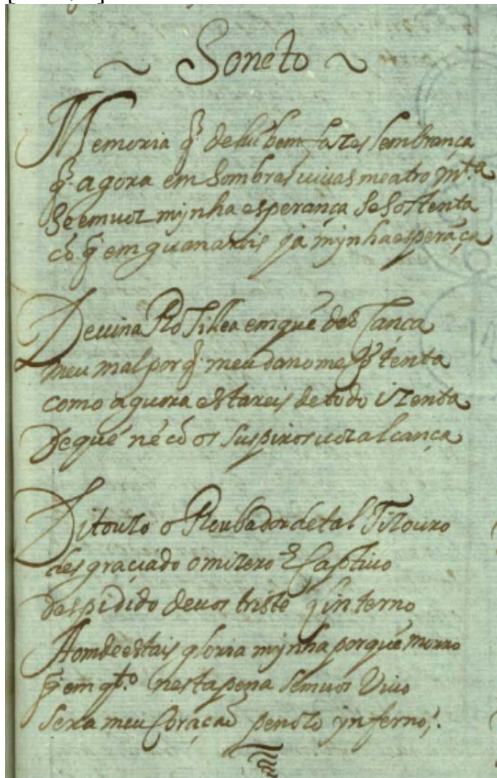 ~ Soneto ~
Memoria q̃ de hũ bem fazes lembrança
q̃ agora em sombras vivas me atromta
Se em vos mynha esperança se sostenta
cõ q̃ emguanais ja mynha esperãça
Devina Rosilea em que descança
meu mal por q̃ meu dano me
como agora estareis de todo izenta
de que nẽ cõ os suspiros vos alcança
Ditoso o Roubador de tal Tisouro
desgraçiado o misero & Captivo
despidido de vos triste
Aomde estais gloria mynha porque mouro
q̃ em qto. nesta pena sem vos Vivo
sera meu Coraçaõ penoso ynferno;